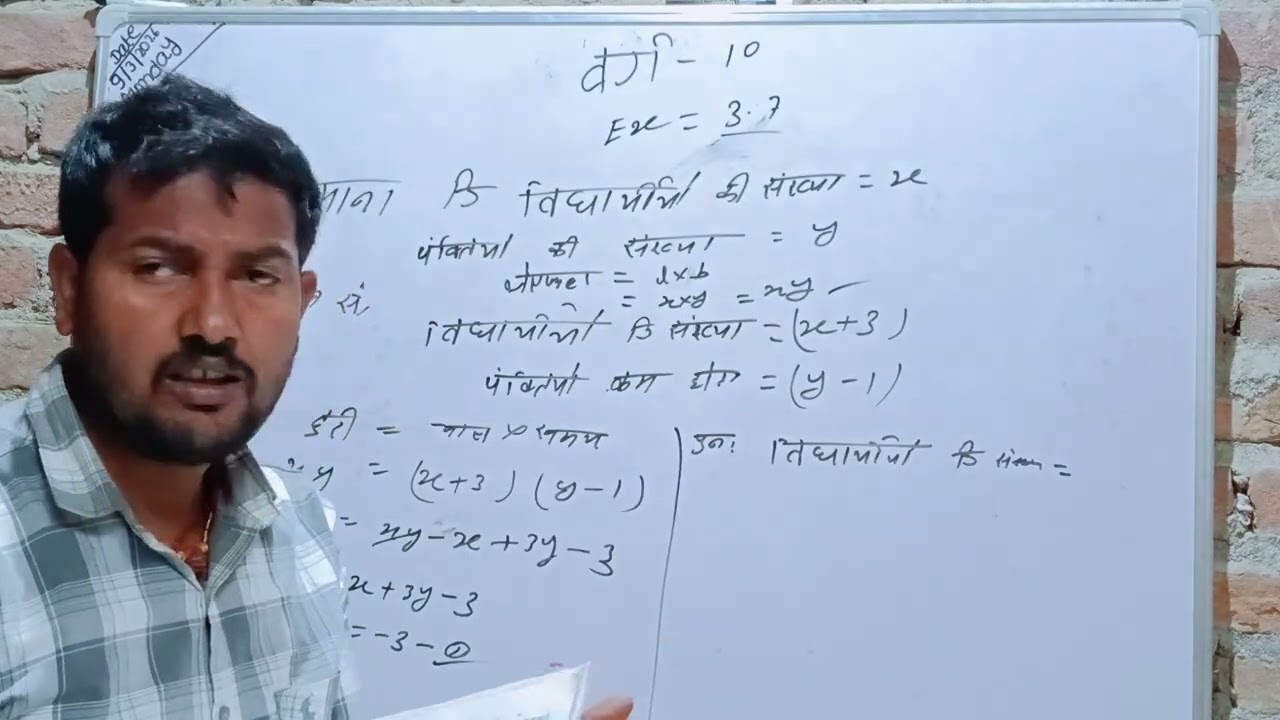 Date
9/3/2026
वर्ग - 10
Ex = 3.7
माना कि विद्यार्थीयों की संख्या = x
पंक्तियों की संख्या = y
= l×b
= x×y = xy
विद्यार्थीयों कि संख्या = (x+3)
पंक्तियों कम होगा = (y-1)
= चाल × समय
y = (x+3) (y-1)
= xy - x + 3y - 3
x + 3y - 3
= -3 - ①
पुनः विद्यार्थीयों कि संख्या =